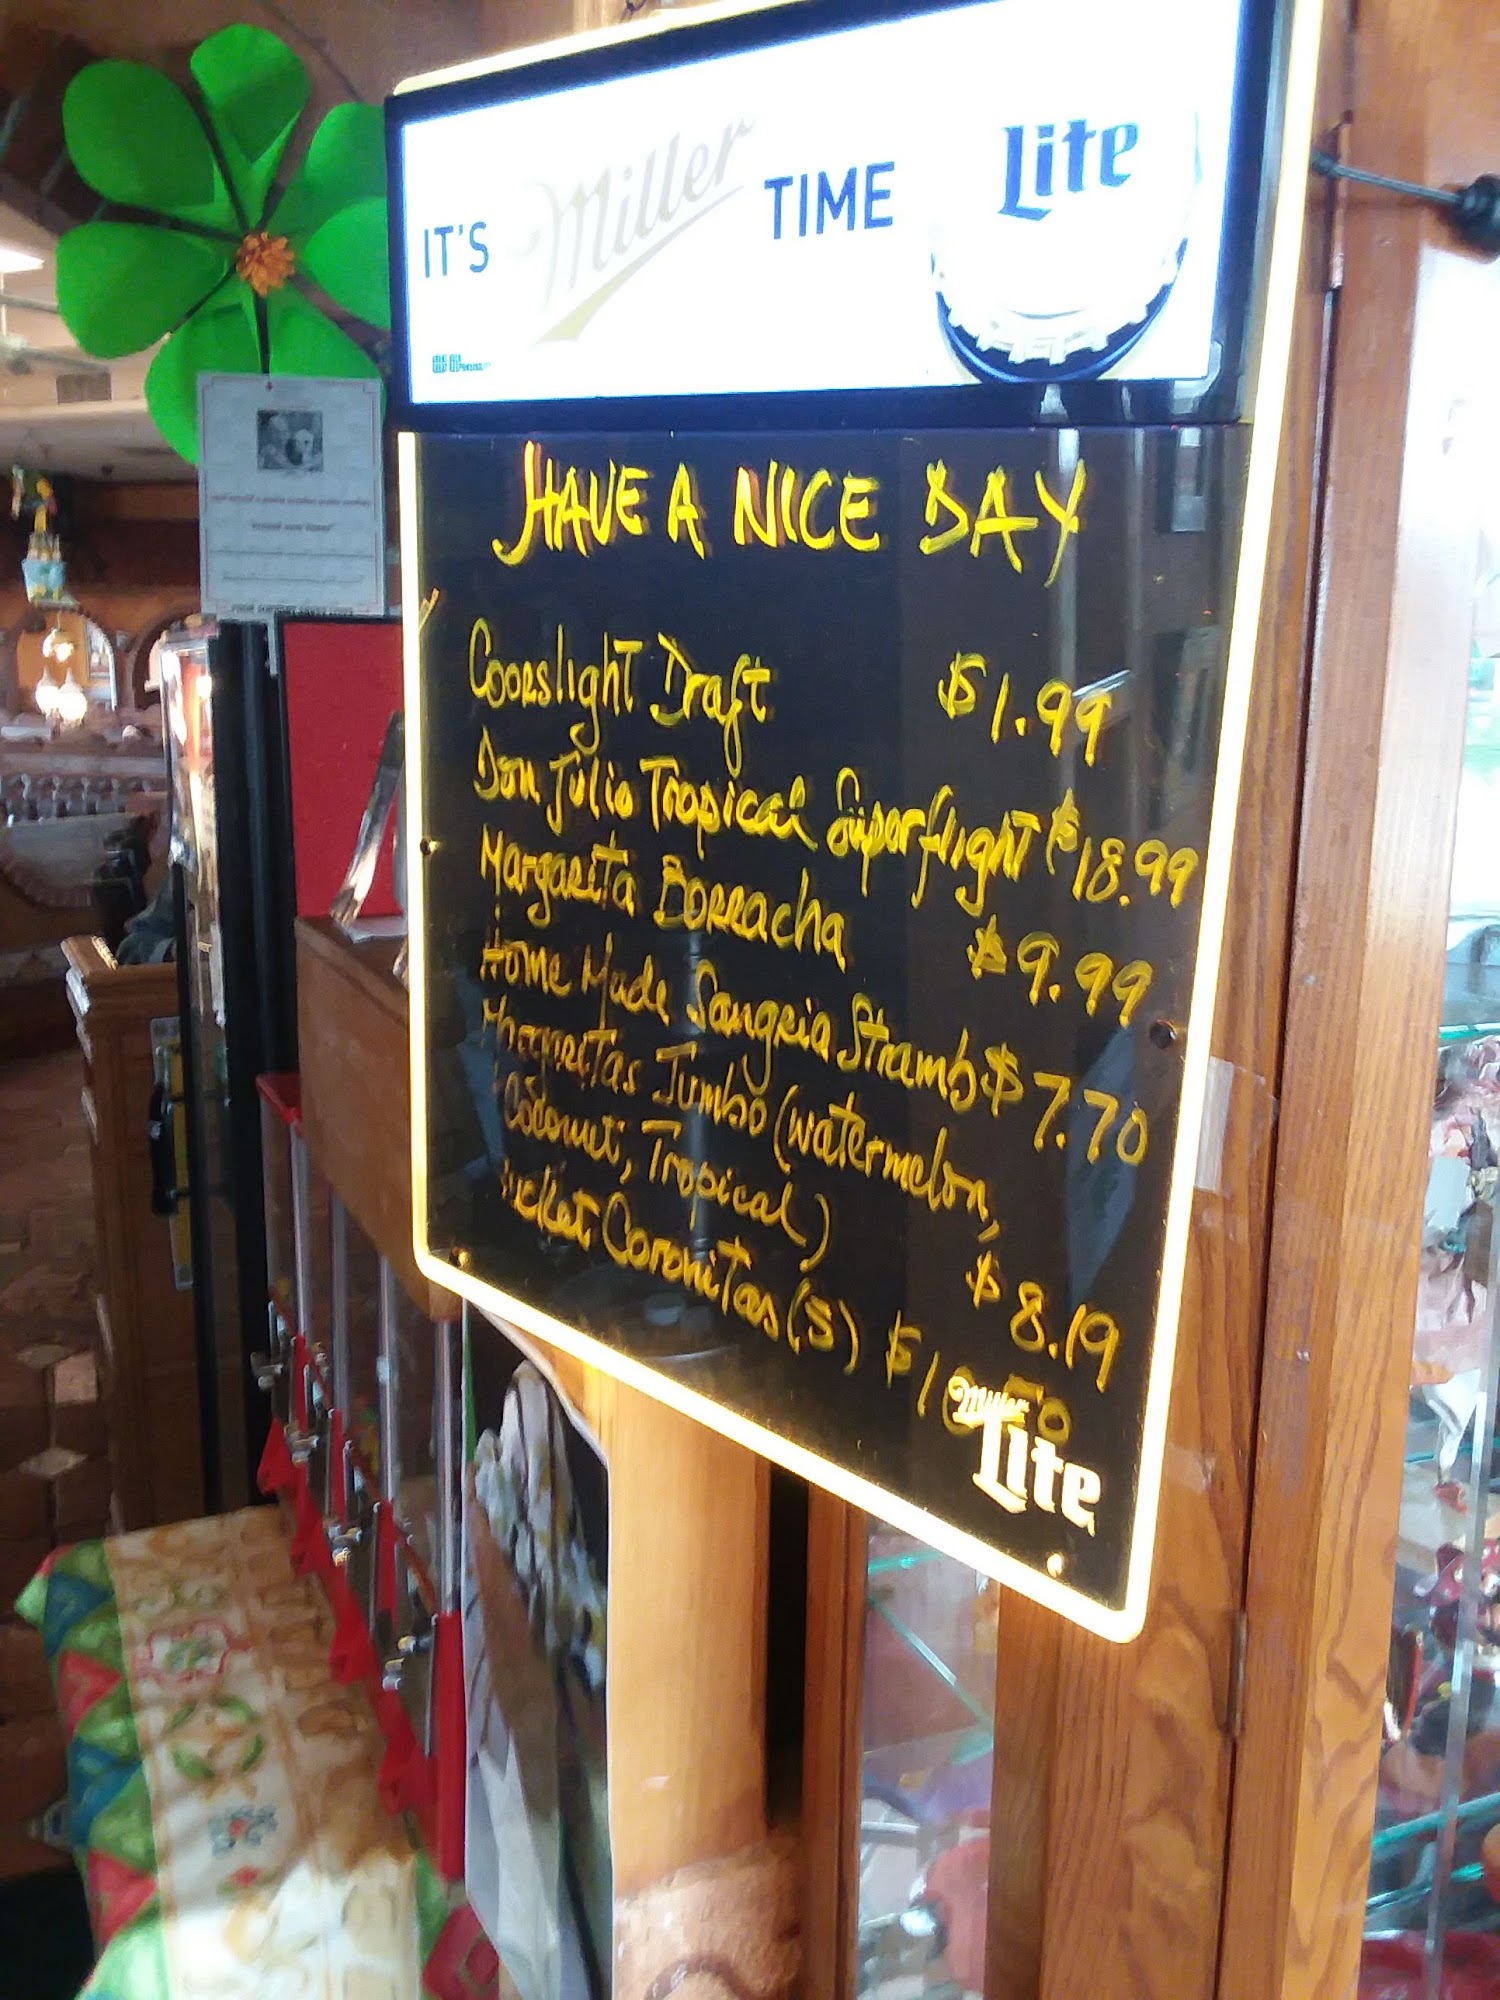 IT'S Miller TIME Lite
HAVE A NICE DAY
Coorslight Draft $1.99
Don Julio Tropical Superflight $18.99
Margarita Borracha $9.99
Home Made Sangria Strawb $7.70
Margaritas Jumbo (watermelon,
Coconut, Tropical) $8.19
Coronitas (5)
Miller
Lite